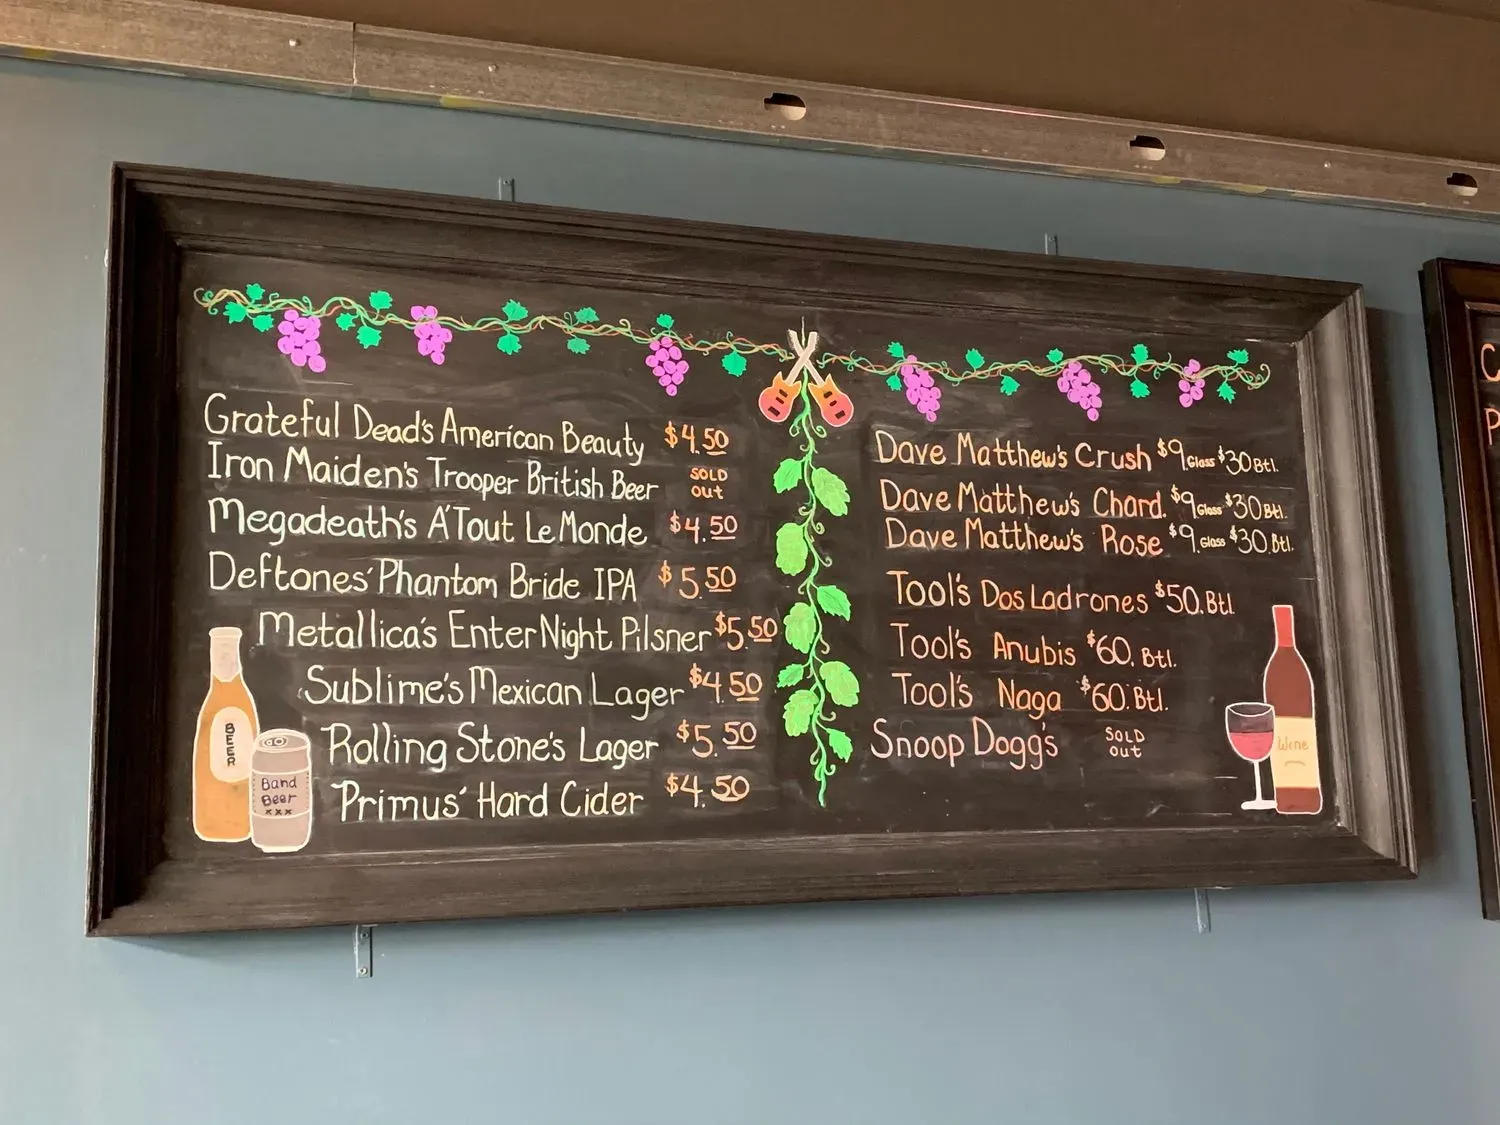 Grateful Dead's American Beauty $4.50
Iron Maiden's Trooper British Beer SOLD OUT
Megadeath's A'Tout Le Monde $4.50
Deftones' Phantom Bride IPA $5.50
Metallica's Enter Night Pilsner $5.50
Sublime's Mexican Lager $4.50
Rolling Stone's Lager $5.50
Primus' Hard Cider $4.50
BEER
Band
Beer
xxx
Dave Matthew's Crush $9.Glass $30 Btl.
Dave Matthew's Chard. $9 Glass $30 Btl.
Dave Matthew's Rose $9.Glass $30.Btl.
Tool's Dos Ladrones $50.Btl
Tool's Anubis $60. Btl.
Tool's Naga $60. Btl.
Snoop Dogg's SOLD OUT
Wine
C
P